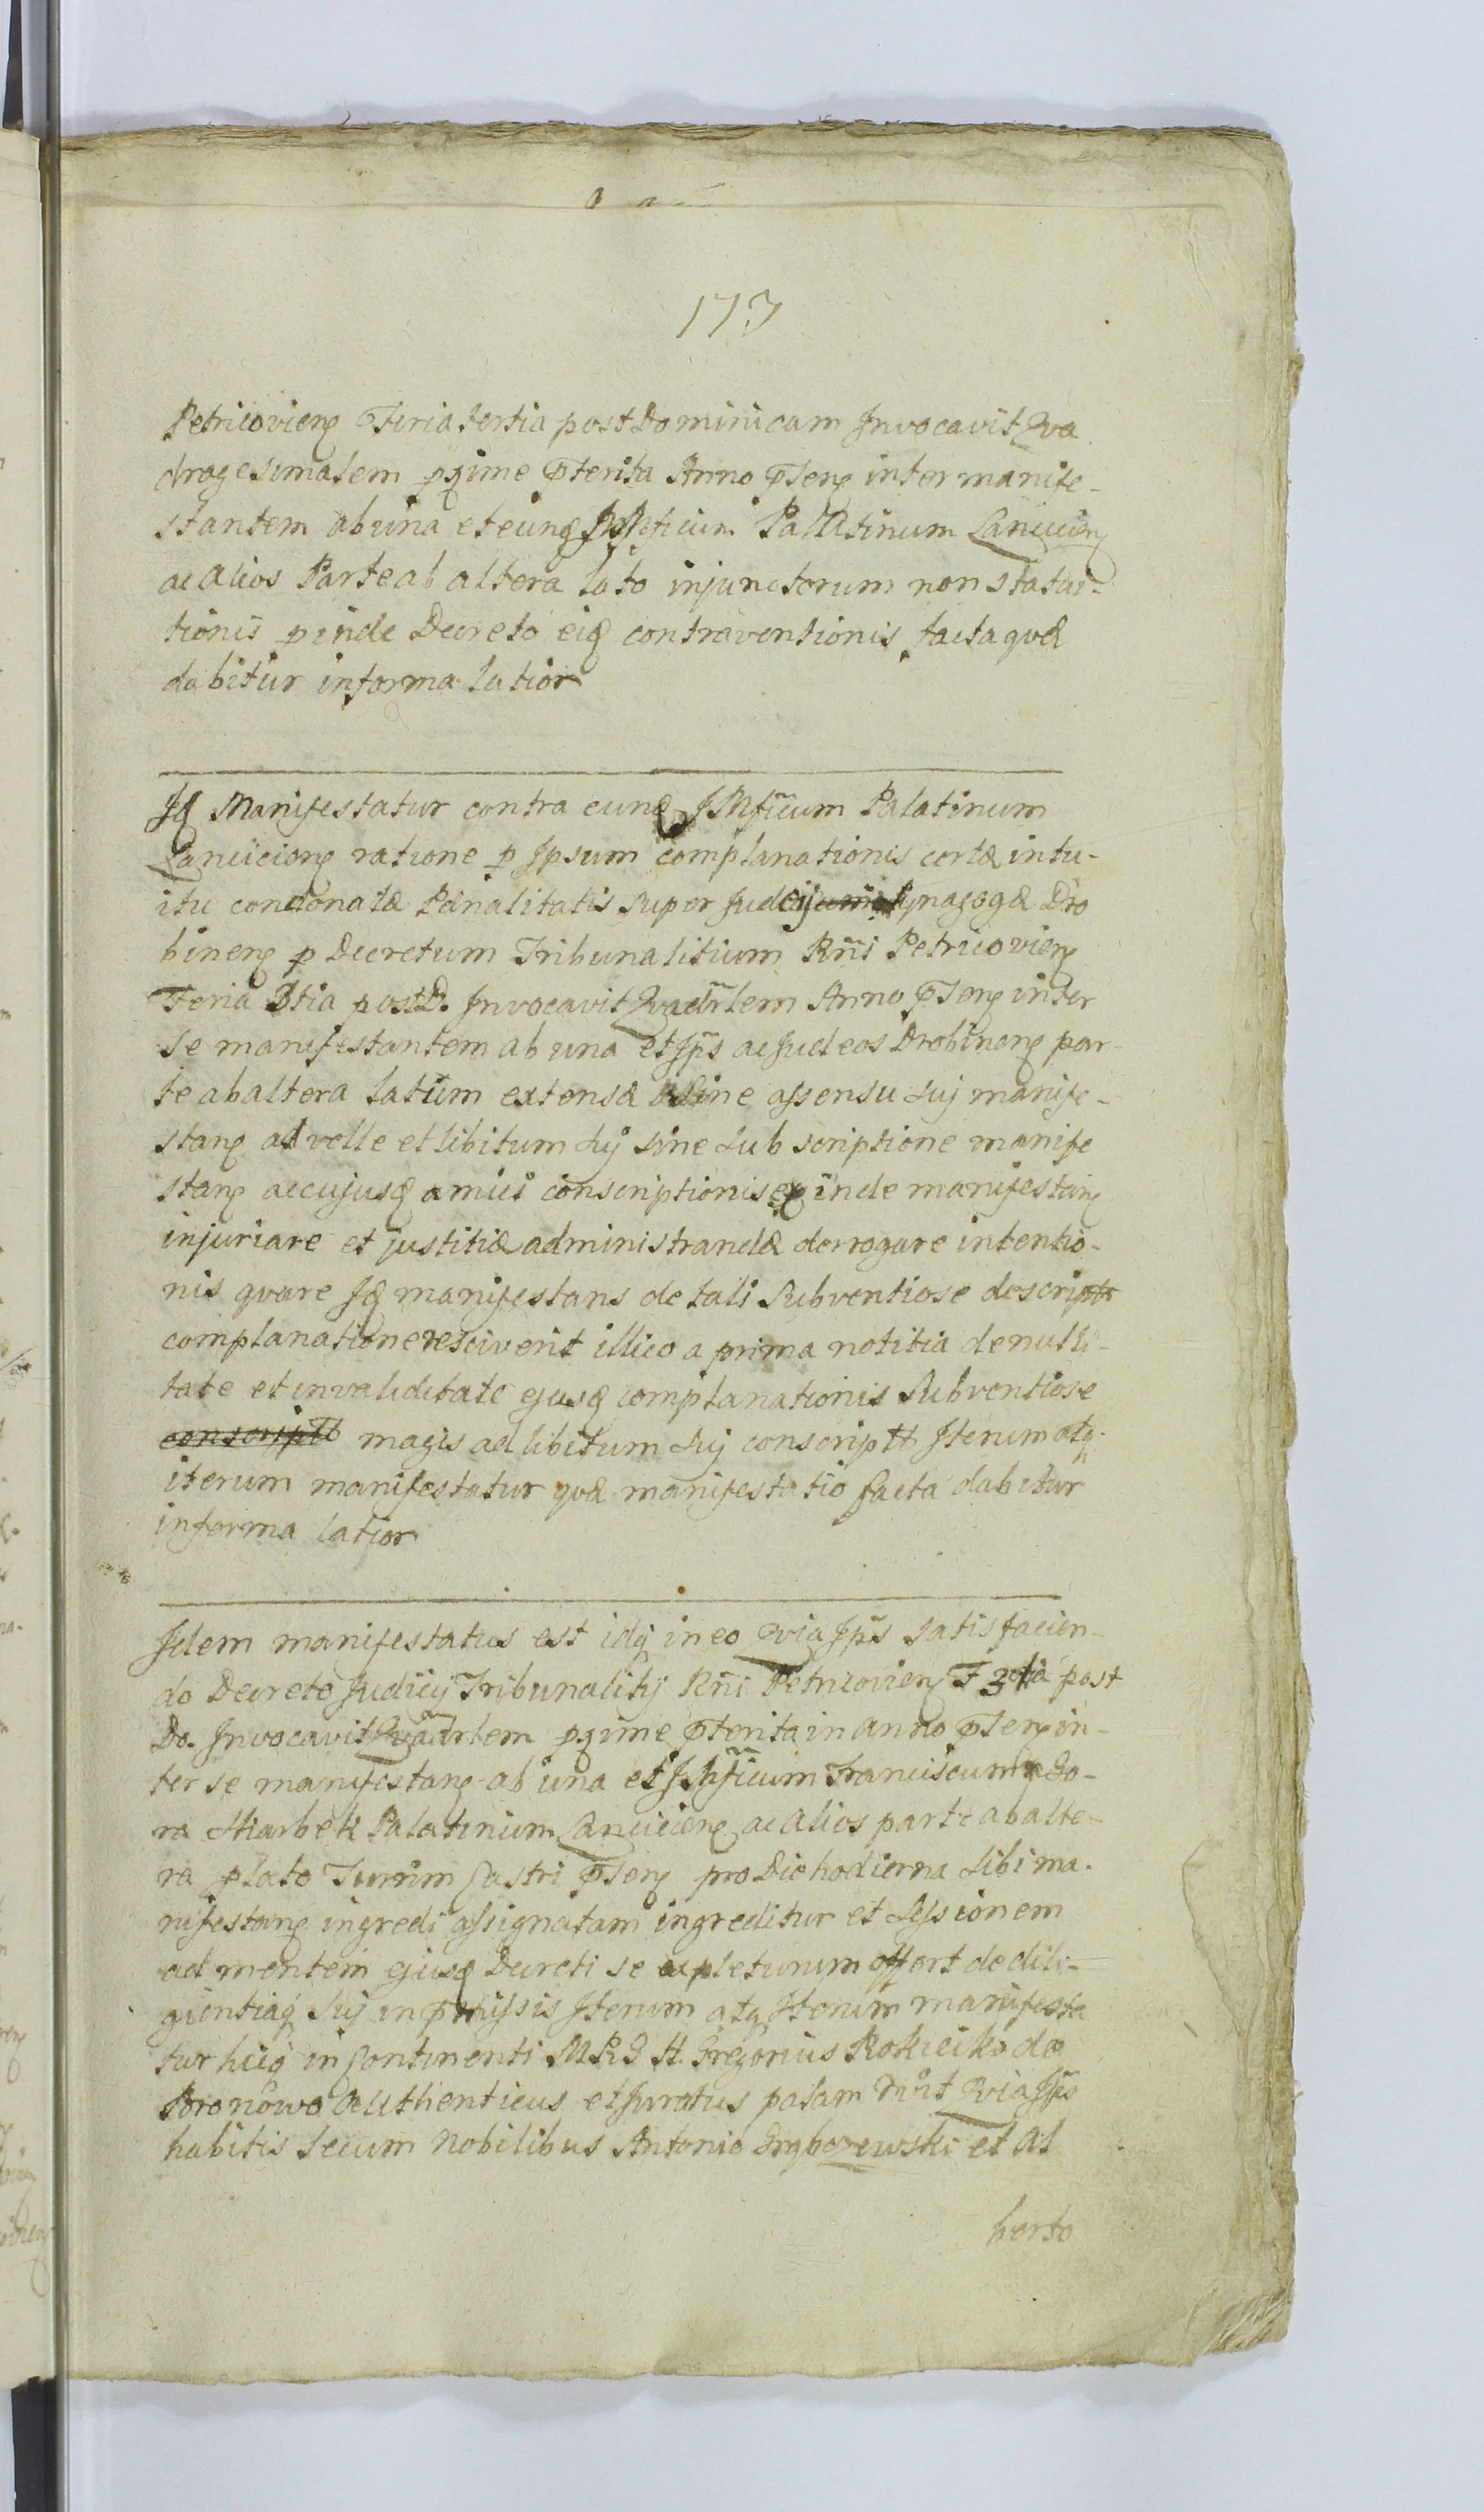 173
Petricovien Feria tertia post Dominicam Invocavit Qva
dragesimalem pxime pterita Anno psen inter manife-
stantem ab una et eund Palatinum Lancicien
ac alios Parte ab altera lato injunctorum non statui-
tionis pinde Decreto eid contraventionis facta qvæ
dabitur in forma latiori
Id Manifestatur contra eund JMficum Palatinum
Lancicien ratione p Ipsum complanationis certæ intu-
itu condonatæ Pænalitatis super Synagogæ Dro
binen p Decretum Tribunalitium Rñi Petricovien
Feria 3tia post D. Invocavit Qvadrlem Anno psen inter
se manifestantem ab una et Jps ac Judeos Drobinen par-
te ab altera latum extensæ sine assensu sui manife-
stan ad velle et libitum sij sine subscriptione manife
stan ac cujusd amici conscriptionis ex inde manifestan
injuriare et justitiæ administrandæ derrogare intentio-
nis qvare Id manifestans de tali subventiose descript
complanatione resciverit illico a prima notitia de nulli-
tate et invaliditate ejusd complanationis subventiose
conscriptt magis ad libitum sij conscriptt Iterum atq
iterum manifestatur qvæ manifestatio facta dabitur
in forma latiori
Idem manifestatus est idq in eo Qvia Jps satisfacien-
do Decreto Judicij Tribunalitij Rñi Petricovien F 3tia post
Do. Invocavit Qvadrlem pxime pterita in anno psen in-
ter se manifestan ab una et JMficum Franciscum a Go-
ra Skarbek Palatinum Lancicien ac alios parte ab alte-
ra plato Turrim Castri psen pro Die hodierna sibi ma-
nifestan ingredi assignatam ingreditur et sessionem
ad mentem ejusd Decreti se expleturum offert de dili-
gientiaq sij in pmissis Iterum atq Iterum manifesta
tur huicq in Continenti MRG H. Gregorius Rokicki de
Boronowo Authenticus et Juratus palam Qvia Jps
habitis secum Nobilibus Antonio et Al
berto